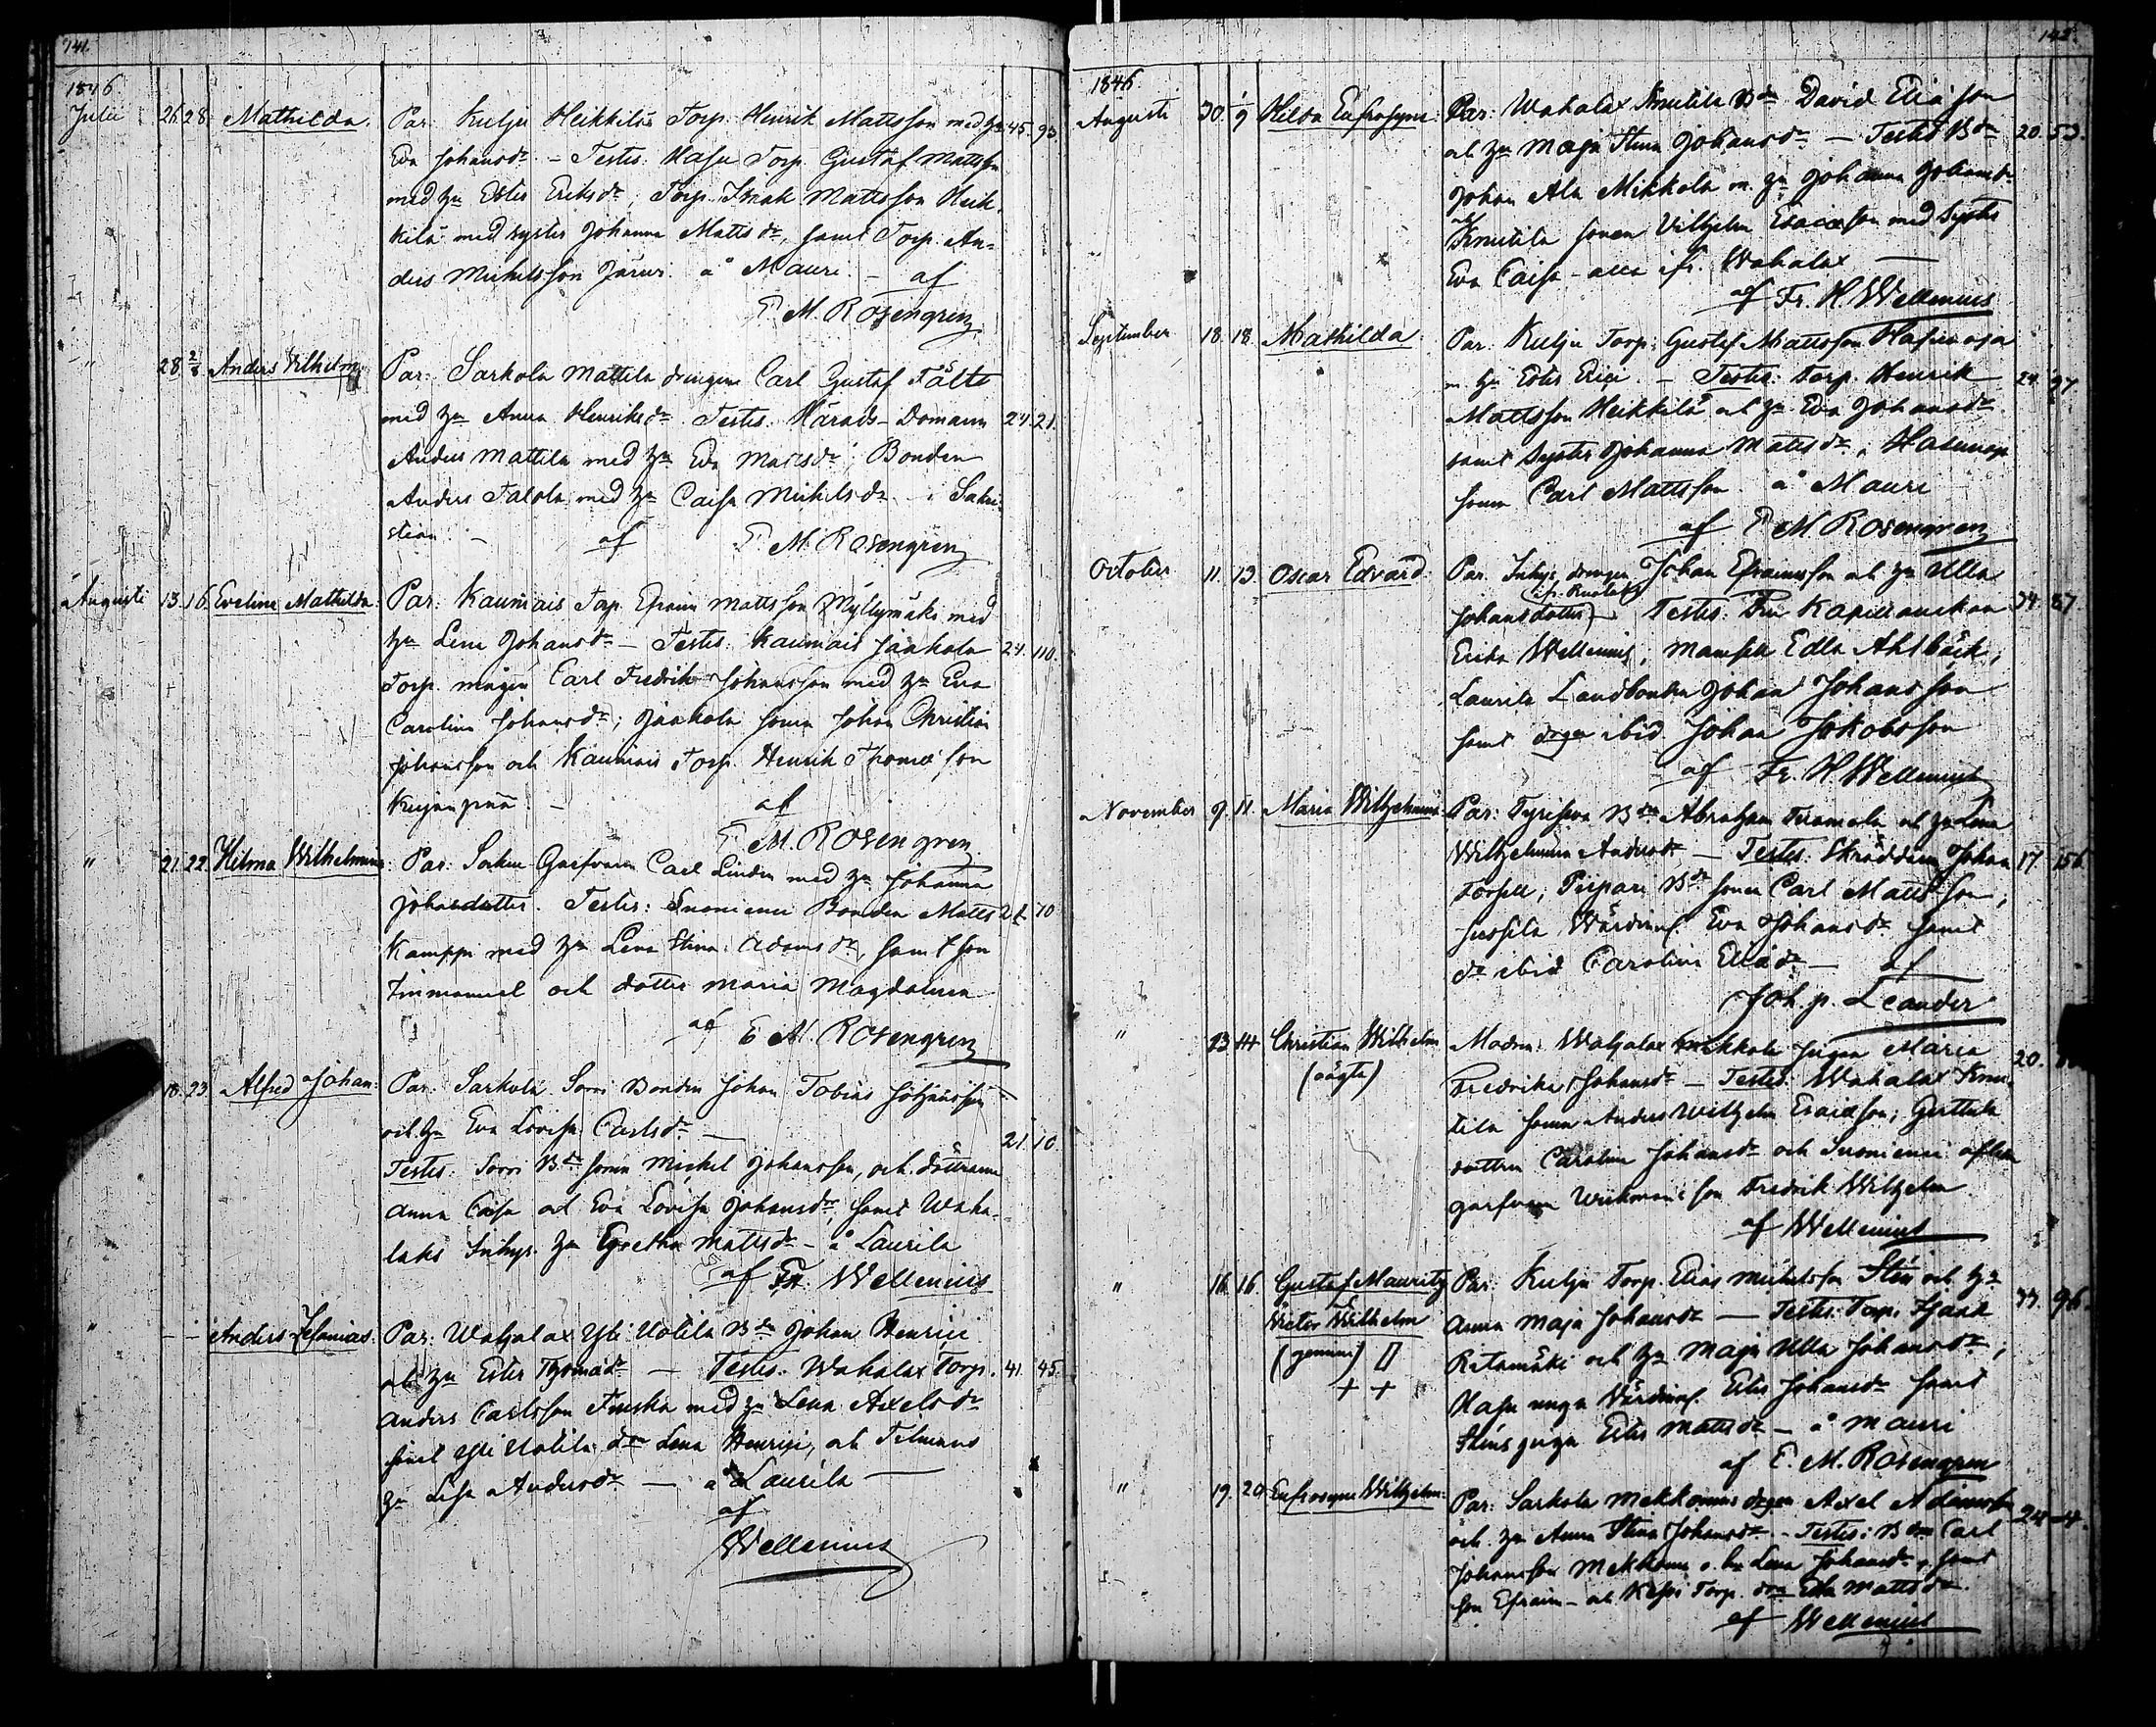 141.
1846.
Julii 26 28 Mathilda. Par: Kulju Heikkilä Torp. Henrik Mattsson med hu 45. 93.
Eva Johansdr. – Testes: Hasu Torp. Gustaf Mattsson
med hu Ester Eriksdr; Torp. Isaak Mattsson Heik-
kilä med syster Johanna Mattsdr, samt Torp. An-
ders Michelsson å Mauri. – af
E M. Rosengren
" 28 2/8 Anders Vilhelm. Par: Sarkola Mattila drängen Carl Gustaf Fält
med hu Anna Henriksdr. Testes: Härads-Domaren 24. 21.
Anders Mattila med hu Eva Mattsdr; Bonden
Anders Talola med hu Caisa Michelsdr – i Sakri-
stian. – af E M. Rosengren
Augusti 13. 16. Eveline Mathilda. Par: Kaumais Torp. Efraim Mattsson Myllymäki med
hu Lena Johansdr – Testes: Kaumais Jaakola 24. 110.
Torp. mågen Carl Fredrik Johansson med hu Eva
Carolina Johansdr; Jaakola sonen Johan Christian
Johansson och Kaumais Torp. Henrik Thomæson
Kujanpää. – af
E M. Rosengren
" 21. 22. Hilma Wilhelmina. Par: Garfvaren Carl Lindin med hu Johanna
Johansdotter. Testes: Suoniemi Bonden Matts 24 70
Kamppi med hu Lena Stina Adamsdr, samt son
Immanuel och dotter Maria Magdalena
af E M. Rosengren
18. 23. Alfred Johan: Par: Sarkola Sorri Bonden Johan Tobias Johansson
och hu Eva Lovisa Carlsdr. – 21. 10.
Testes: Sorri Bdn sonen Mickel Johansson, och döttrarne
Anna Caisa och Eva Lovisa Johansdr, samt Waha-
laks Inhys. hu Egretha Mattsdr – å Laurila
af Fr. Wellenius
" – – Anders Zefanias. Par: Wahalax Yli Uotila Bdn Johan Henrici
och hu Ester Thomædr – Testes: Wahalax Torp. 41. 45.
Anders Carlsson med hu Lena Axelsdr
samt Yli Uotila dr Lena Henrici, och
hu Lisa Andersdr – å Laurila –
af
Wellenius
142.
1846.
Augusti 30. 1/9 Hilda Eufrosyne. Par: Wahalax Knuutila Bdn David Eliæson
och hu Maja Stina Johansdr – Testes Bdn 20. 53.
Johan Ala Mikkola m. hu Johanna Johansdr
och Knuutila sonen Vilhelm Esaiæson med syster
Eva Caisa – alla ifr. Wahalax –
af Fr. H. Wellenius
September 18. 18. Mathilda. Par: Kulju Torp. Gustaf Mattsson Hasunoja
m. hu Ester Erici. – Testes: Torp. Henrik 24. 97
Mattsson Heikkilä och hu Eva Johansdr
samt syster Johanna Mattsdr, Hasunoja
sonen Carl Mattsson. å Mauri
af E M. Rosengren
October 11. 13. Oscar Edvard. Par: Inhys. drängen Johan Efraimsson och hu Ulla
Johansdotter – Testes: Fru Kapellanskan 34. 87.
Erika Wellenius, Mamsell Edla Ahlbäck,
Laurila Landbonden Johan Johansson
samt drgen ibid. Johan Jakobsson
af Fr. H Wellenius
November 9. 11. Maria Wilhelmina. Par: Bdn Abraham och hu Lena
Wilhelmina Andersdr – Testes: Skräddaren Johan 17. 156.
Forsell, Pispari Bdn sonen Carl Mattsson,
Jussila Värdinn. Eva Johansdr samt
dr ibid Carolina Eliædr – af
Joh. p. Leander
" 13 14 Christian Wilhelm (oägta) Modren: Wahalax Mikkola pigan Maria 20.
Fredrika Johansdr – Testes: Wahalax Knuu-
tila sonen Anders Wilhelm Esaiæson; Gerttula
dottren Carolina Johansdr och Suoniemi aflidn
garfvaren Wickmans son Fredrik Wilhelm
af Wellenius
" 16. 16. Gustaf Mauritz Par: Kulju Torp. Elias Michelsson Sten och hu
Victor Wilhelm Anna Maja Johansdr – Testes: Torp. Isaak 33. 96.
(gemini) Ritamäki och hu Maja Ulla Johansdr,
+ + Hasu unga Värdinn. Ester Johansdr samt
Stens piga Ester Mattsdr – å Mauri
af E. M. Rosengren
" 19. 20. Eufrosyne Wilhelm: Par: Sarkola Mekkomus drgen Axel Adamsson 24 4.
och hu Anna Stina Johansdr – Testes: Bdn Carl
Johansson Mekkomus o. hu Lena Johansdr, samt
son Efraim – och Torp. drn Edla Mattsdr.
af Wellenius